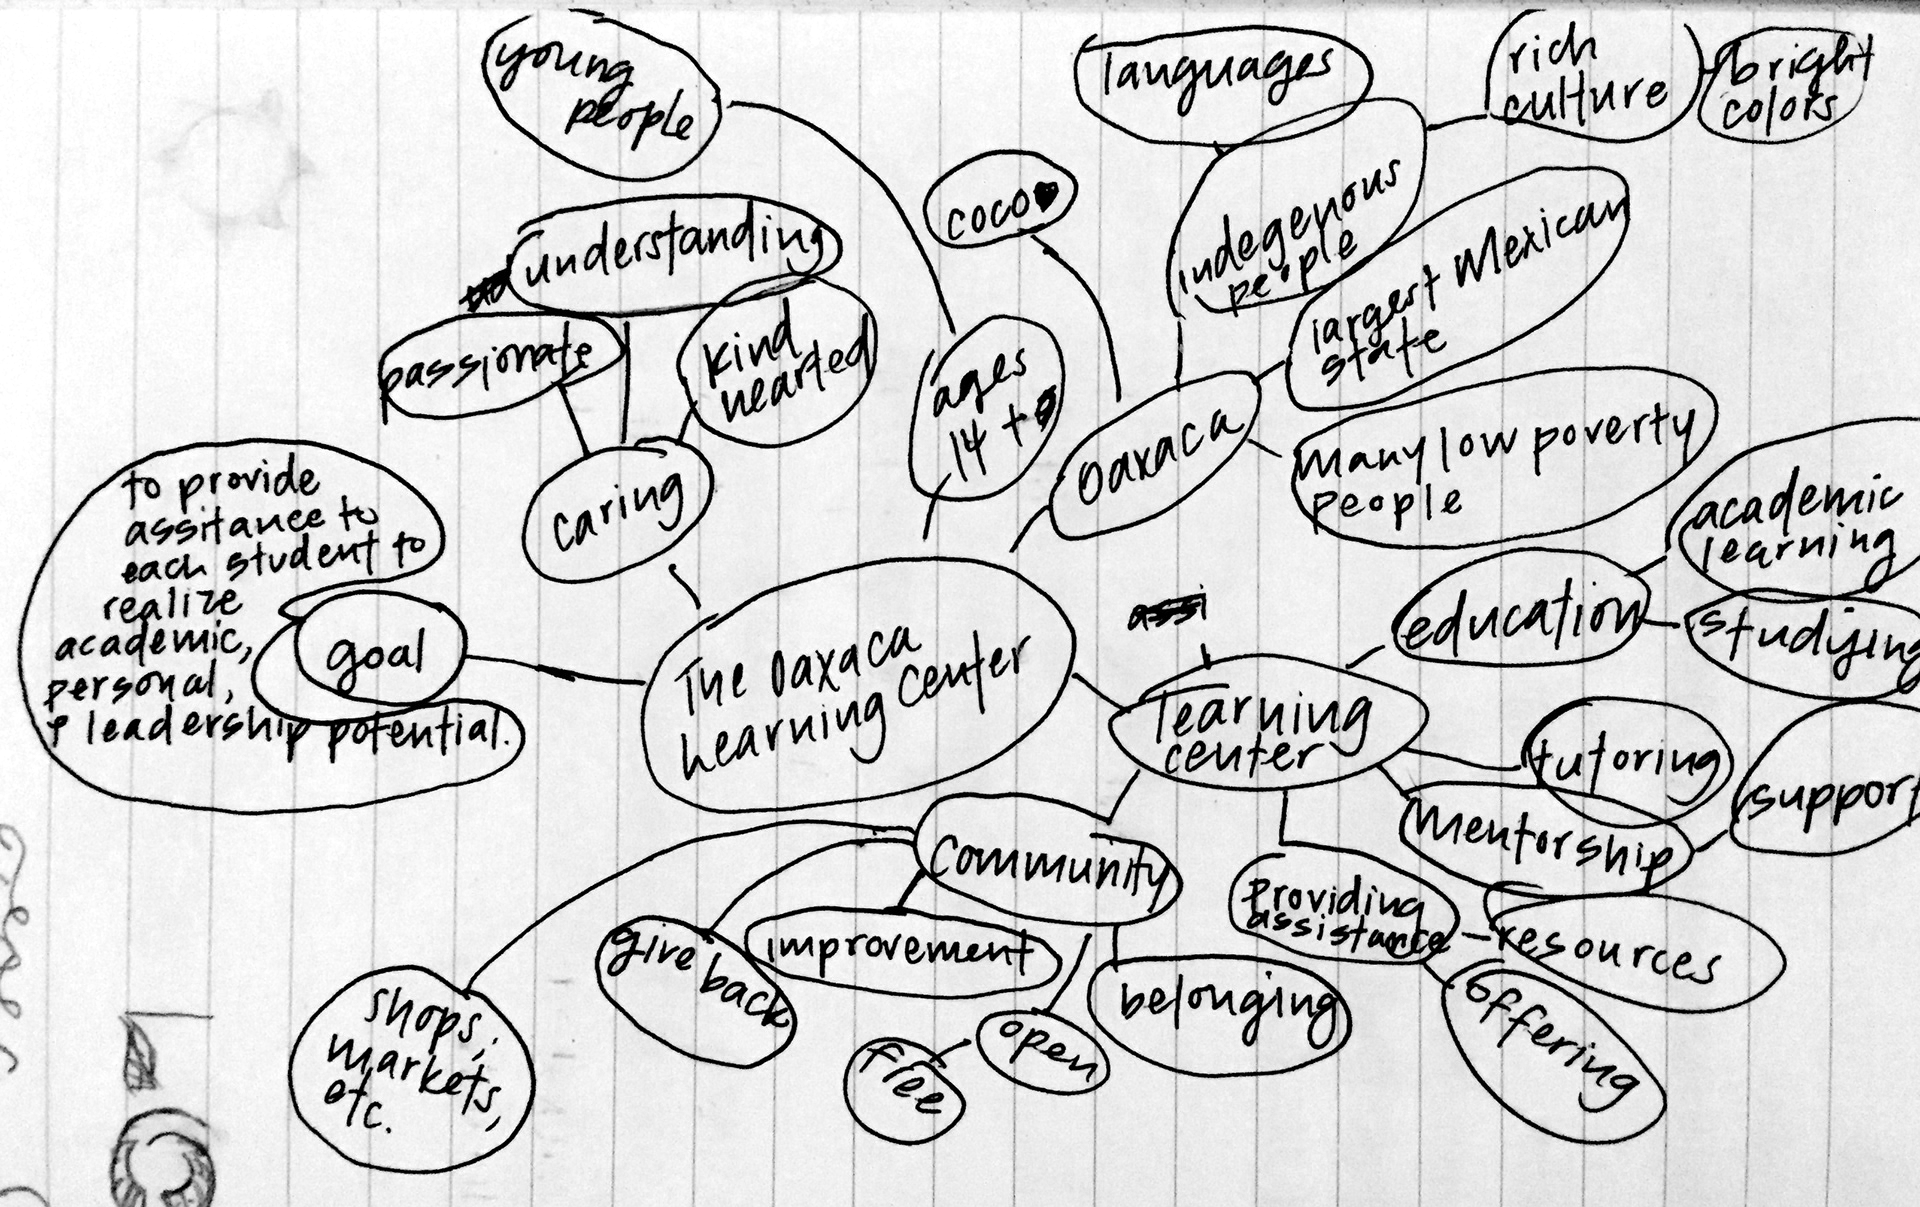 young
people
languages
rich
culture
bright
colors
coco
understanding
indegenous
people
largest Mexican
state
passionate
kind
hearted
ages
14 +
Oaxaca
many low poverty
people
caring
academic
learning
to provide
assitance to
each student to
realize
academic,
personal,
& leadership potential.
goal
The Oaxaca
Learning Center
assi
education
studying
learning
center
tutoring
support
mentorship
community
providing
assistance
resources
offering
give back
improvement
belonging
open
free
shops,
markets,
etc.